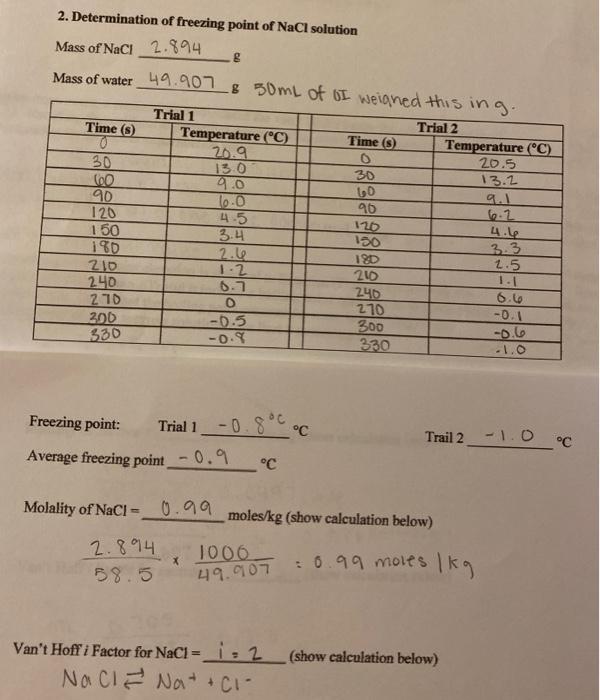 2. Determination of freezing point of NaCl solution
Mass of NaCl 2.894 g
Mass of water 49.907 g 50mL of DI weighed this in g.
Trial 1 Trial 2
Time (s) Temperature (°C) Time (s) Temperature (°C)
0 20.9 0 20.5
30 13.0 30 13.2
60 9.0 60 9.1
90 6.0 90 6.2
120 4.5 120 4.6
150 3.4 150 3.3
180 2.6 180 2.5
210 1.2 210 1.1
240 0.7 240 0.6
270 0 270 -0.1
300 -0.5 300 -0.6
330 -0.8 330 -1.0
Freezing point: Trial 1 -0.8°C °C Trail 2 -1.0 °C
Average freezing point -0.9 °C
Molality of NaCl = 0.99 moles/kg (show calculation below)
2.894 / 58.5 x 1000 / 49.907 = 0.99 moles/kg
Van't Hoff i Factor for NaCl = i = 2 (show calculation below)
NaCl ⇌ Na+ + Cl-